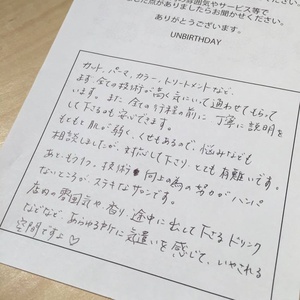 雰囲気やサービス等で
した点がありましたらお聞かせください。
ありがとうございます。
UNBIRTHDAY
カット、パーマ、カラー、トリートメントなど、
まず全ての技術が高く気にいって通わせてもらって
います。また全ての行程の前に丁寧に説明を
して下さるので安心できます。
もともと肌が弱く、くせもあるので、悩みなども
相談しましたが、対応して下さり、とても有難いです。
あと、もう1つ、技術向上の為の努力がハンパ
ないところが、ステキなサロンです。
店内の雰囲気や香り、途中に出して下さるドリンク
などなど、あらゆる所に気遣いを感じて、いやされる
空間ですよ♡